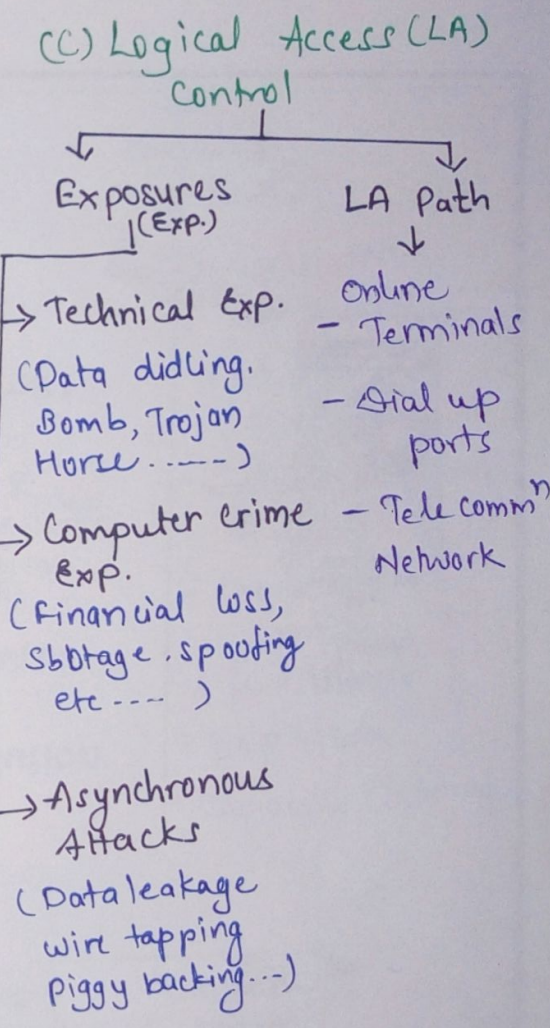 (C) Logical Access (LA)
Control
Exposures
(Exp.)
→ Technical Exp.
(Data didling.
Bomb, Trojan
Horse......)
→ Computer crime
Exp.
(Financial loss,
Sbotage. spoofing
etc ---- )
→ Asynchronous
Attacks
(Data leakage
wire tapping
piggy backing...)
LA Path
Online
- Terminals
- Dial up
ports
- Tele commⁿ
Network